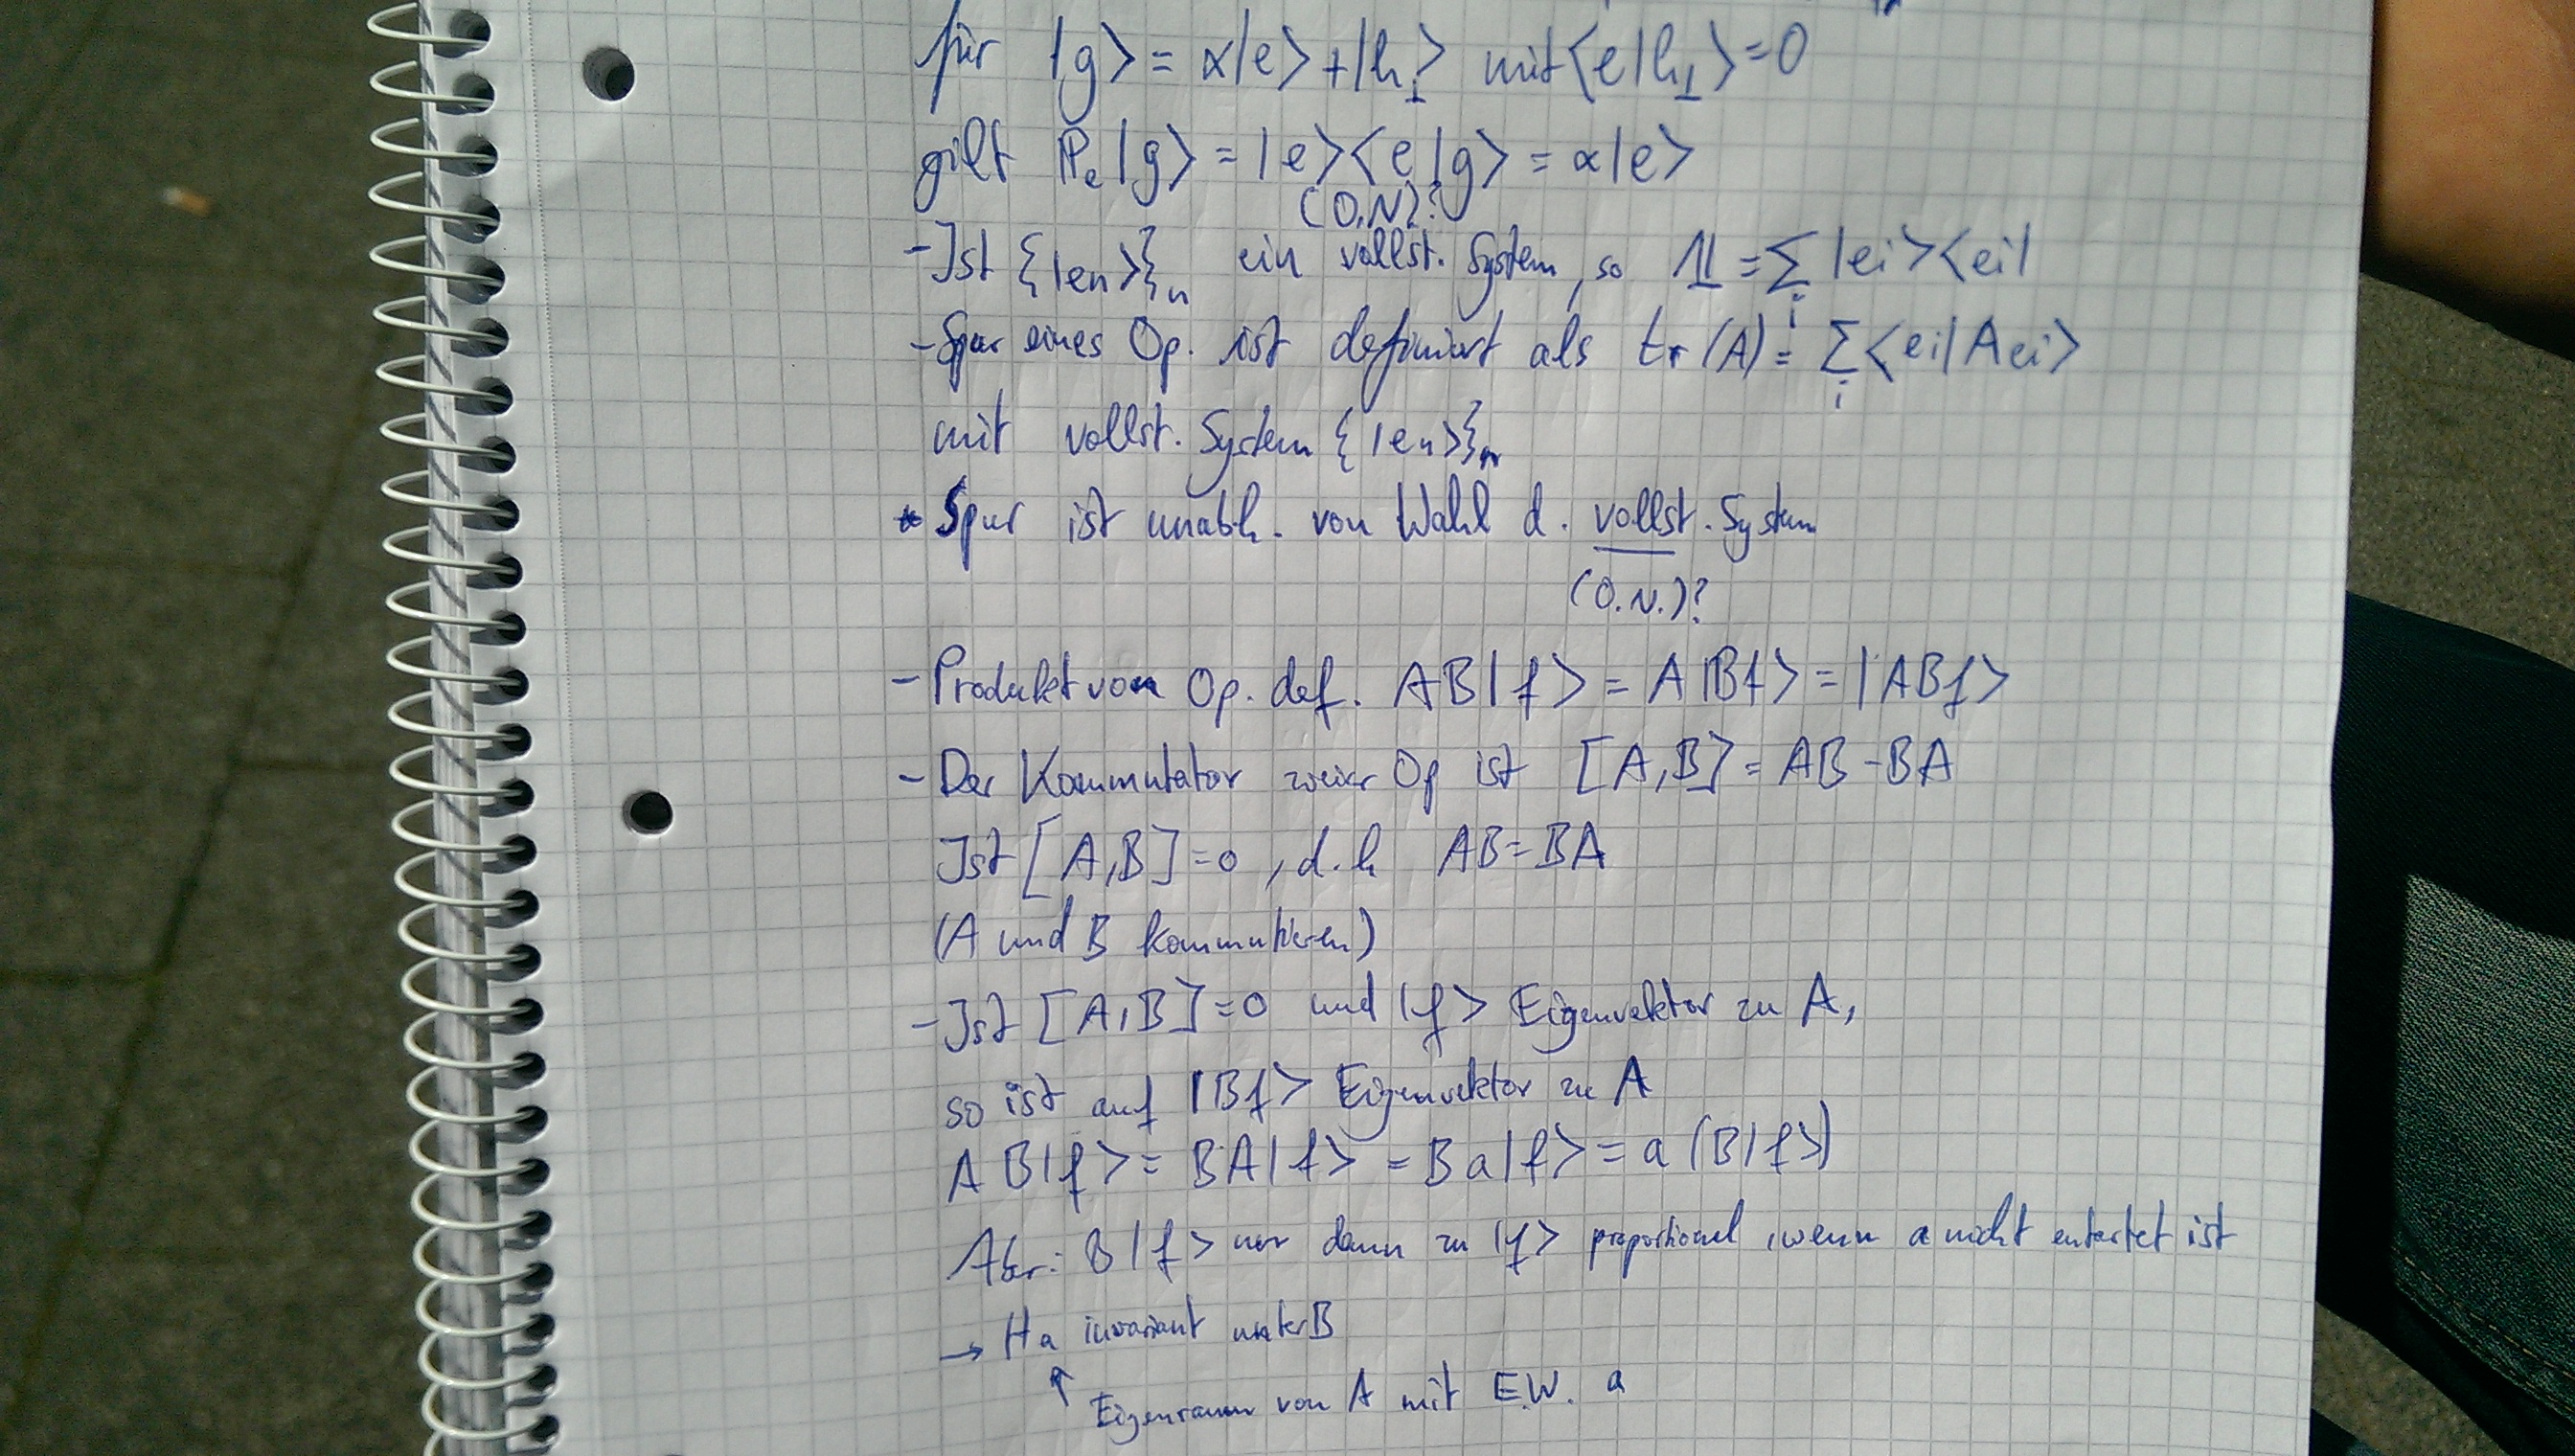 für |g> = α|e> + |h⊥> mit <e|h⊥> = 0
gilt ℙe|g> = |e><e|g> = α|e>
(O.N)?
- Ist {|en>}n ein vollst. System, so 𝟙 = ∑i |ei><ei|
- Spur eines Op. ist definiert als tr(A) = ∑i <ei|Aei>
mit vollst. System {|en>}n
* Spur ist unabh. von Wahl d. vollst. System
(O.N.)?
- Produkt von Op. def. AB|f> = A|Bf> = |ABf>
- Der Kommutator zweier Op ist [A,B] = AB - BA
Ist [A,B] = 0, d.h AB = BA
(A und B kommutieren)
- Ist [A,B] = 0 und |f> Eigenvektor zu A,
so ist auf |Bf> Eigenvektor zu A
AB|f> = BA|f> = Ba|f> = a(B|f>)
Aber: B|f> nur dann zu |f> proportional, wenn a nicht entartet ist
→ Ha invariant unter B
↑ Eigenraum von A mit E.W. a